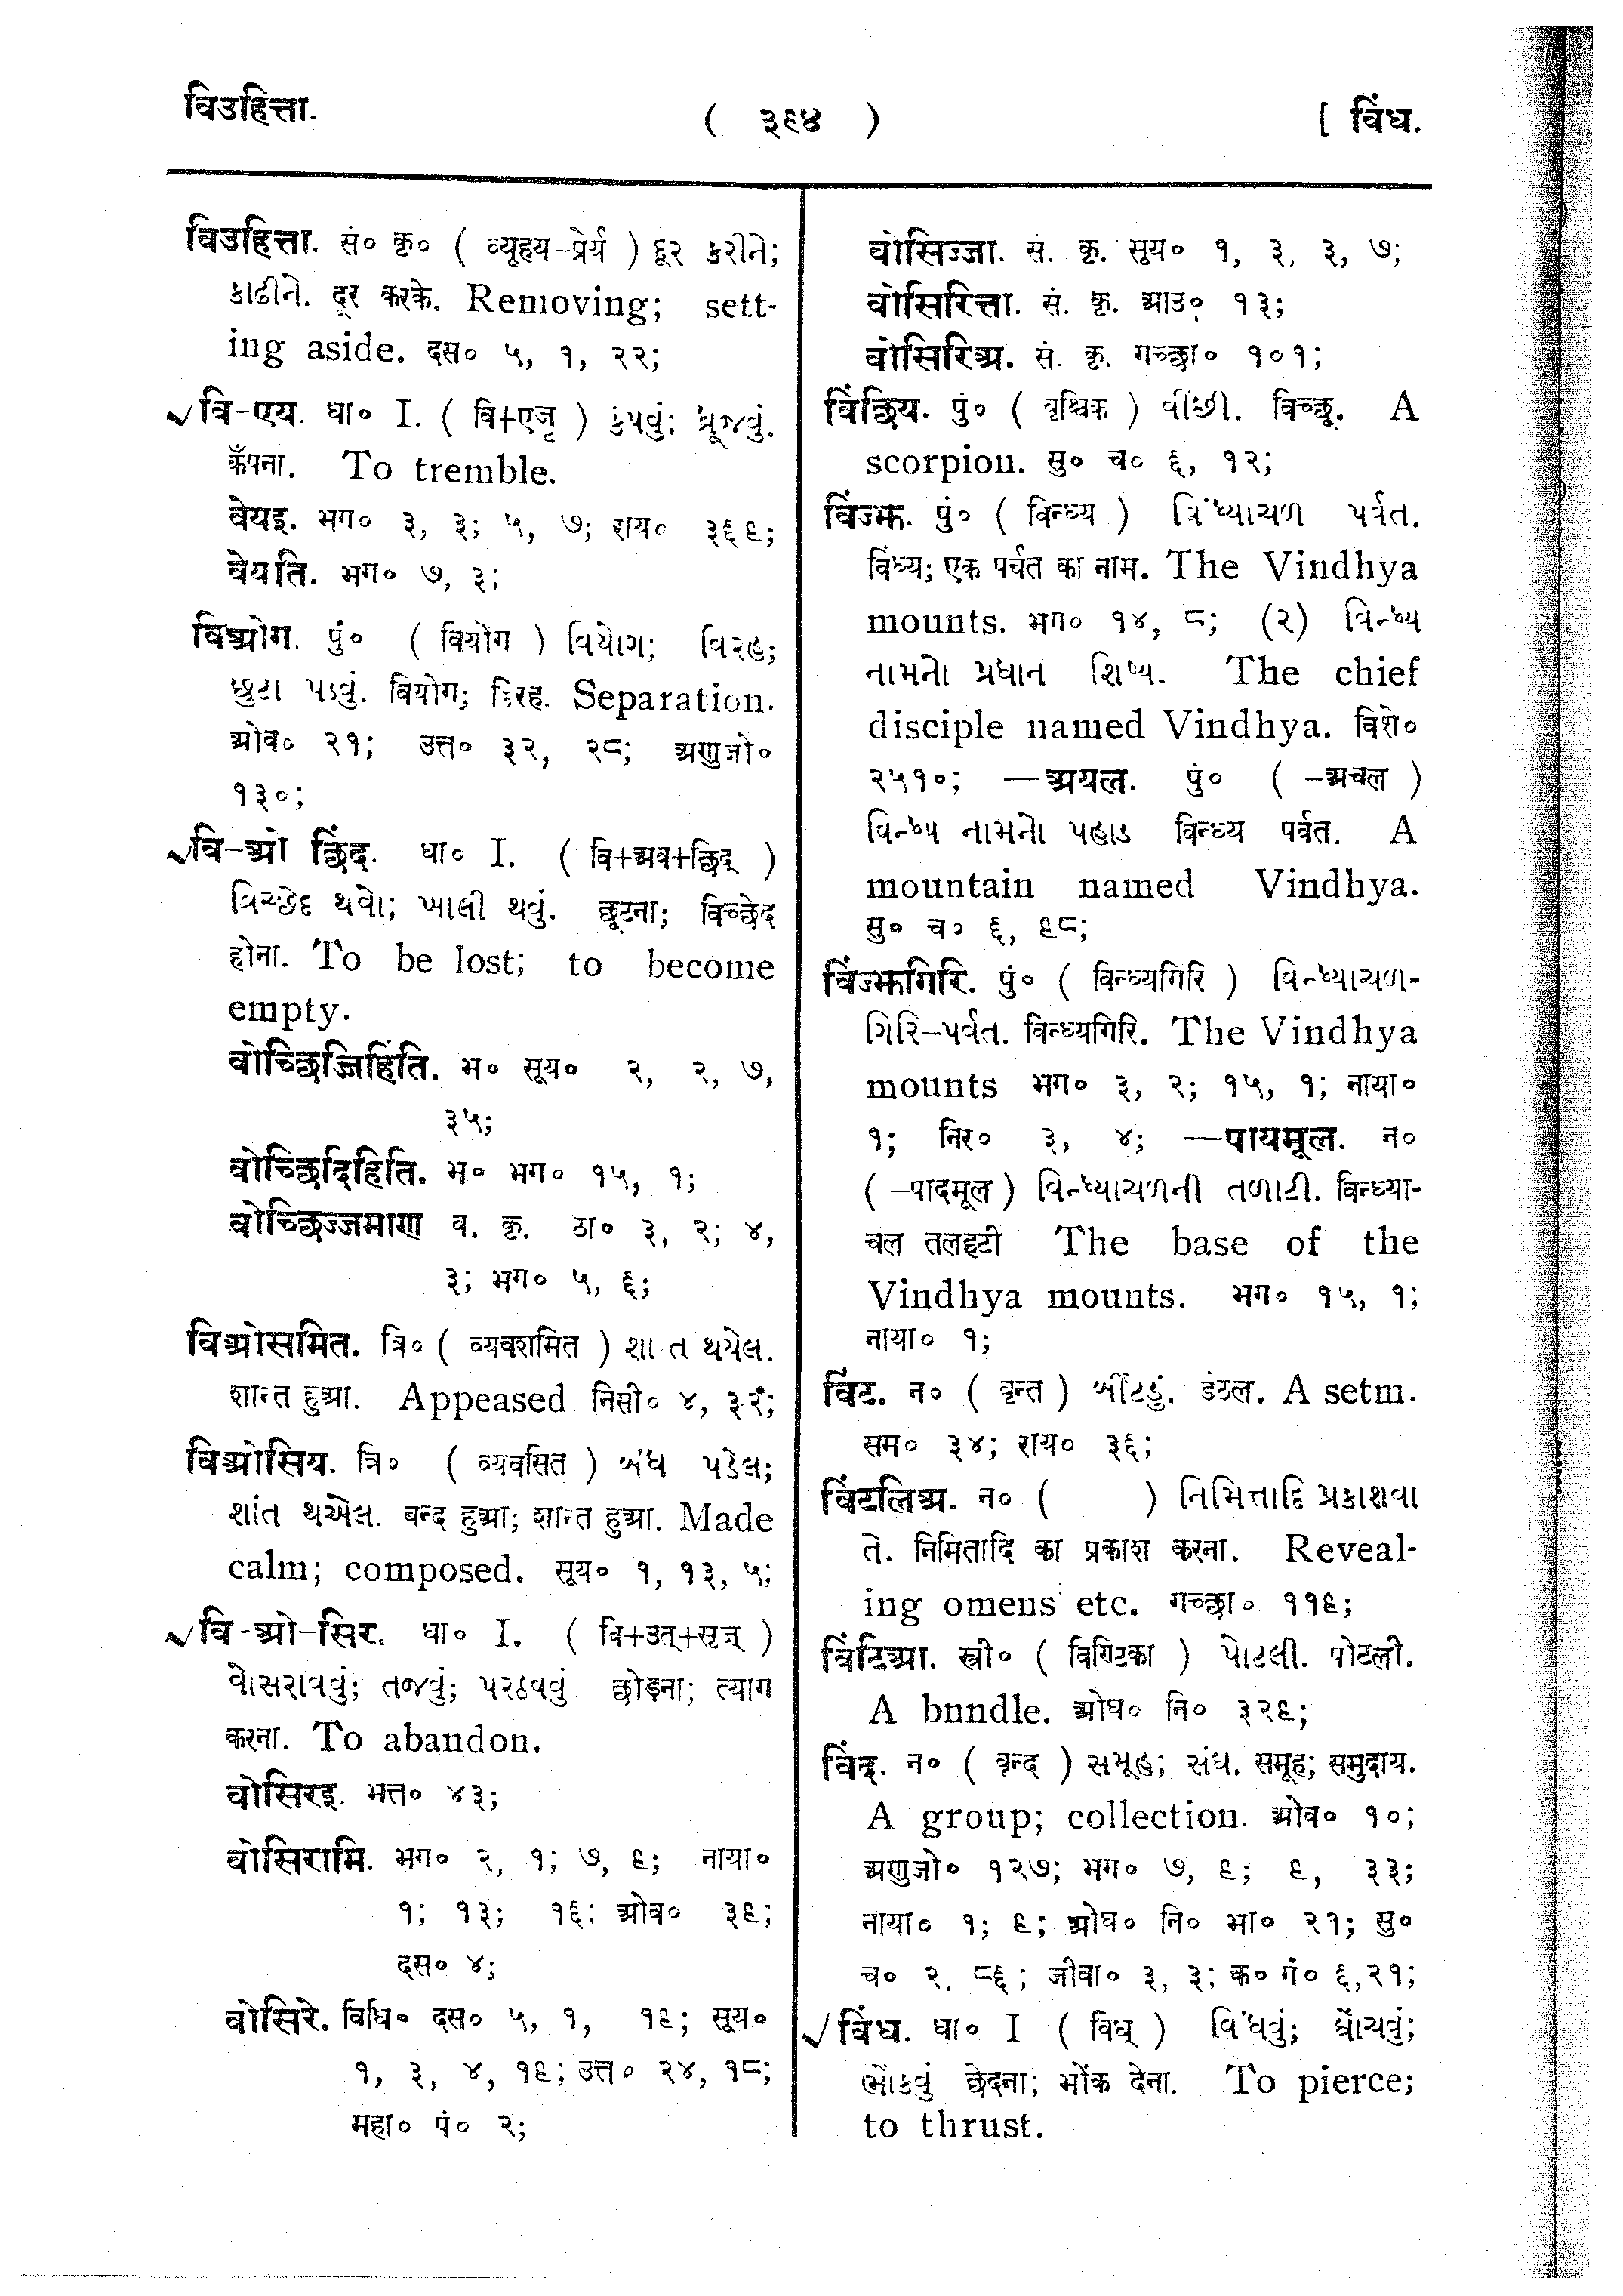 विउहित्ता.
( ३९४ )
[ विंध.
विउहित्ता. सं॰ कृ॰ ( व्यूहय-प्रेर्य ) દૂર કરીને;
કાઢીને. दूर करके. Removing; sett-
ing aside. दस॰ ५, १, २२;
✓वि-एय. धा॰ I. ( वि+एजृ ) કંપવું; ધ્રૂજવું.
कँपना. To tremble.
वेयइ. भग॰ ३, ३; ५, ७; राय॰ ३६९;
वेयति. भग॰ ७, ३;
विओग. पुं॰ ( वियोग ) વિયોગ; વિરહ;
છુટા પડવું. वियोग; विरह. Separation.
ओव॰ २१; उत्त॰ ३२, २८; अणुजो॰
१३०;
✓वि-ओ छिंद. धा॰ I. ( वि+अव+छिद् )
વિચ્છેદ થવો; ખાલી થવું. छूटना; विच्छेद
होना. To be lost; to become
empty.
वोच्छिज्जिहिंति. भ॰ सूय॰ २, २, ७,
३५;
वोच्छिदिहिति. भ॰ भग॰ १५, १;
वोच्छिज्जमाण व. कृ. ठा॰ ३, २; ४,
३; भग॰ ५, ६;
विओसमित. त्रि॰ ( व्यवशमित ) શાન્ત થયેલ.
शान्त हुआ. Appeased. निसी॰ ४, ३२;
विओसिय. त्रि॰ ( व्यवसित ) બંધ પડેલ;
શાંત થએલ. बन्द हुआ; शान्त हुआ. Made
calm; composed. सूय॰ १, १३, ५;
✓वि-ओ-सिर. धा॰ I. ( वि+उत्+सृज् )
વોસરાવવું; તજવું; પરઠવવું छोड़ना; त्याग
करना. To abandon.
वोसिरइ. भत्त॰ ४३;
वोसिरामि. भग॰ २, १; ७, ९; नाया॰
१; १३; १६; ओव॰ ३९;
दस॰ ४;
वोसिरे. विधि॰ दस॰ ५, १, १९; सूय॰
१, ३, ४, १९; उत्त॰ २४, १८;
महा॰ पं॰ २;
वोसिज्जा. सं. कृ. सूय॰ १, ३, ३, ७;
वोसिरित्ता. सं. कृ. आउ॰ १३;
वोसिरिअ. सं. कृ. गच्छा॰ १०१;
विंछिय. पुं॰ ( वृश्चिक ) વીંછી. विच्छू. A
scorpion. सु॰ च॰ ६, १२;
विंज्झ. पुं॰ ( विन्ध्य ) વિંધ્યાચળ પર્વત.
विंध्य; एक पर्वत का नाम. The Vindhya
mounts. भग॰ १४, ८; (२) વિન્ધ્ય
નામનો પ્રધાન શિષ્ય. The chief
disciple named Vindhya. विशे॰
२५१०; —अयल. पुं॰ ( -अचल )
વિન્ધ્ય નામનો પહાડ विन्ध्य पर्वत. A
mountain named Vindhya.
सु॰ च॰ ६, ९८;
विंज्झगिरि. पुं॰ ( विन्ध्यगिरि ) વિન્ધ્યાચળ-
ગિરિ-પર્વત. विन्ध्यगिरि. The Vindhya
mounts भग॰ ३, २; १५, १; नाया॰
१; निर॰ ३, ४; —पायमूल. न॰
( -पादमूल ) વિન્ધ્યાચળની તળાટી. विन्ध्या-
चल तलहटी The base of the
Vindhya mounts. भग॰ १५, १;
नाया॰ १;
विंट. न॰ ( वृन्त ) બીંટડું. डंठल. A setm.
सम॰ ३४; राय॰ ३६;
विंटलिअ. न॰ ( ) નિમિત્તાદિ પ્રકાશવા
તે. निमितादि का प्रकाश करना. Reveal-
ing omens etc. गच्छा॰ ११९;
विंटिआ. स्त्री॰ ( विण्टिका ) પોટલી. पोटली.
A bnndle. ओघ॰ नि॰ ३२९;
विंद. न॰ ( वृन्द ) સમૂહ; સંઘ. समूह; समुदाय.
A group; collection. ओव॰ १०;
अणुजो॰ १२७; भग॰ ७, ९; ९, ३३;
नाया॰ १; ९; ओघ॰ नि॰ भा॰ २१; सु॰
च॰ २, ८६; जीवा॰ ३, ३; क॰ गं॰ ६,२१;
✓विंध. धा॰ I ( विध् ) વિંધવું; ઘોંચવું;
ભોંકવું छेदना; भोंक देना. To pierce;
to thrust.